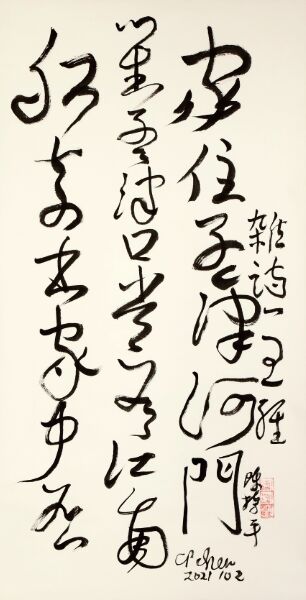 家住孟津河門
對孟津口常有江南
船寄書家中否
雜詩 王維
陳 平
CP Chen
2021 10 2